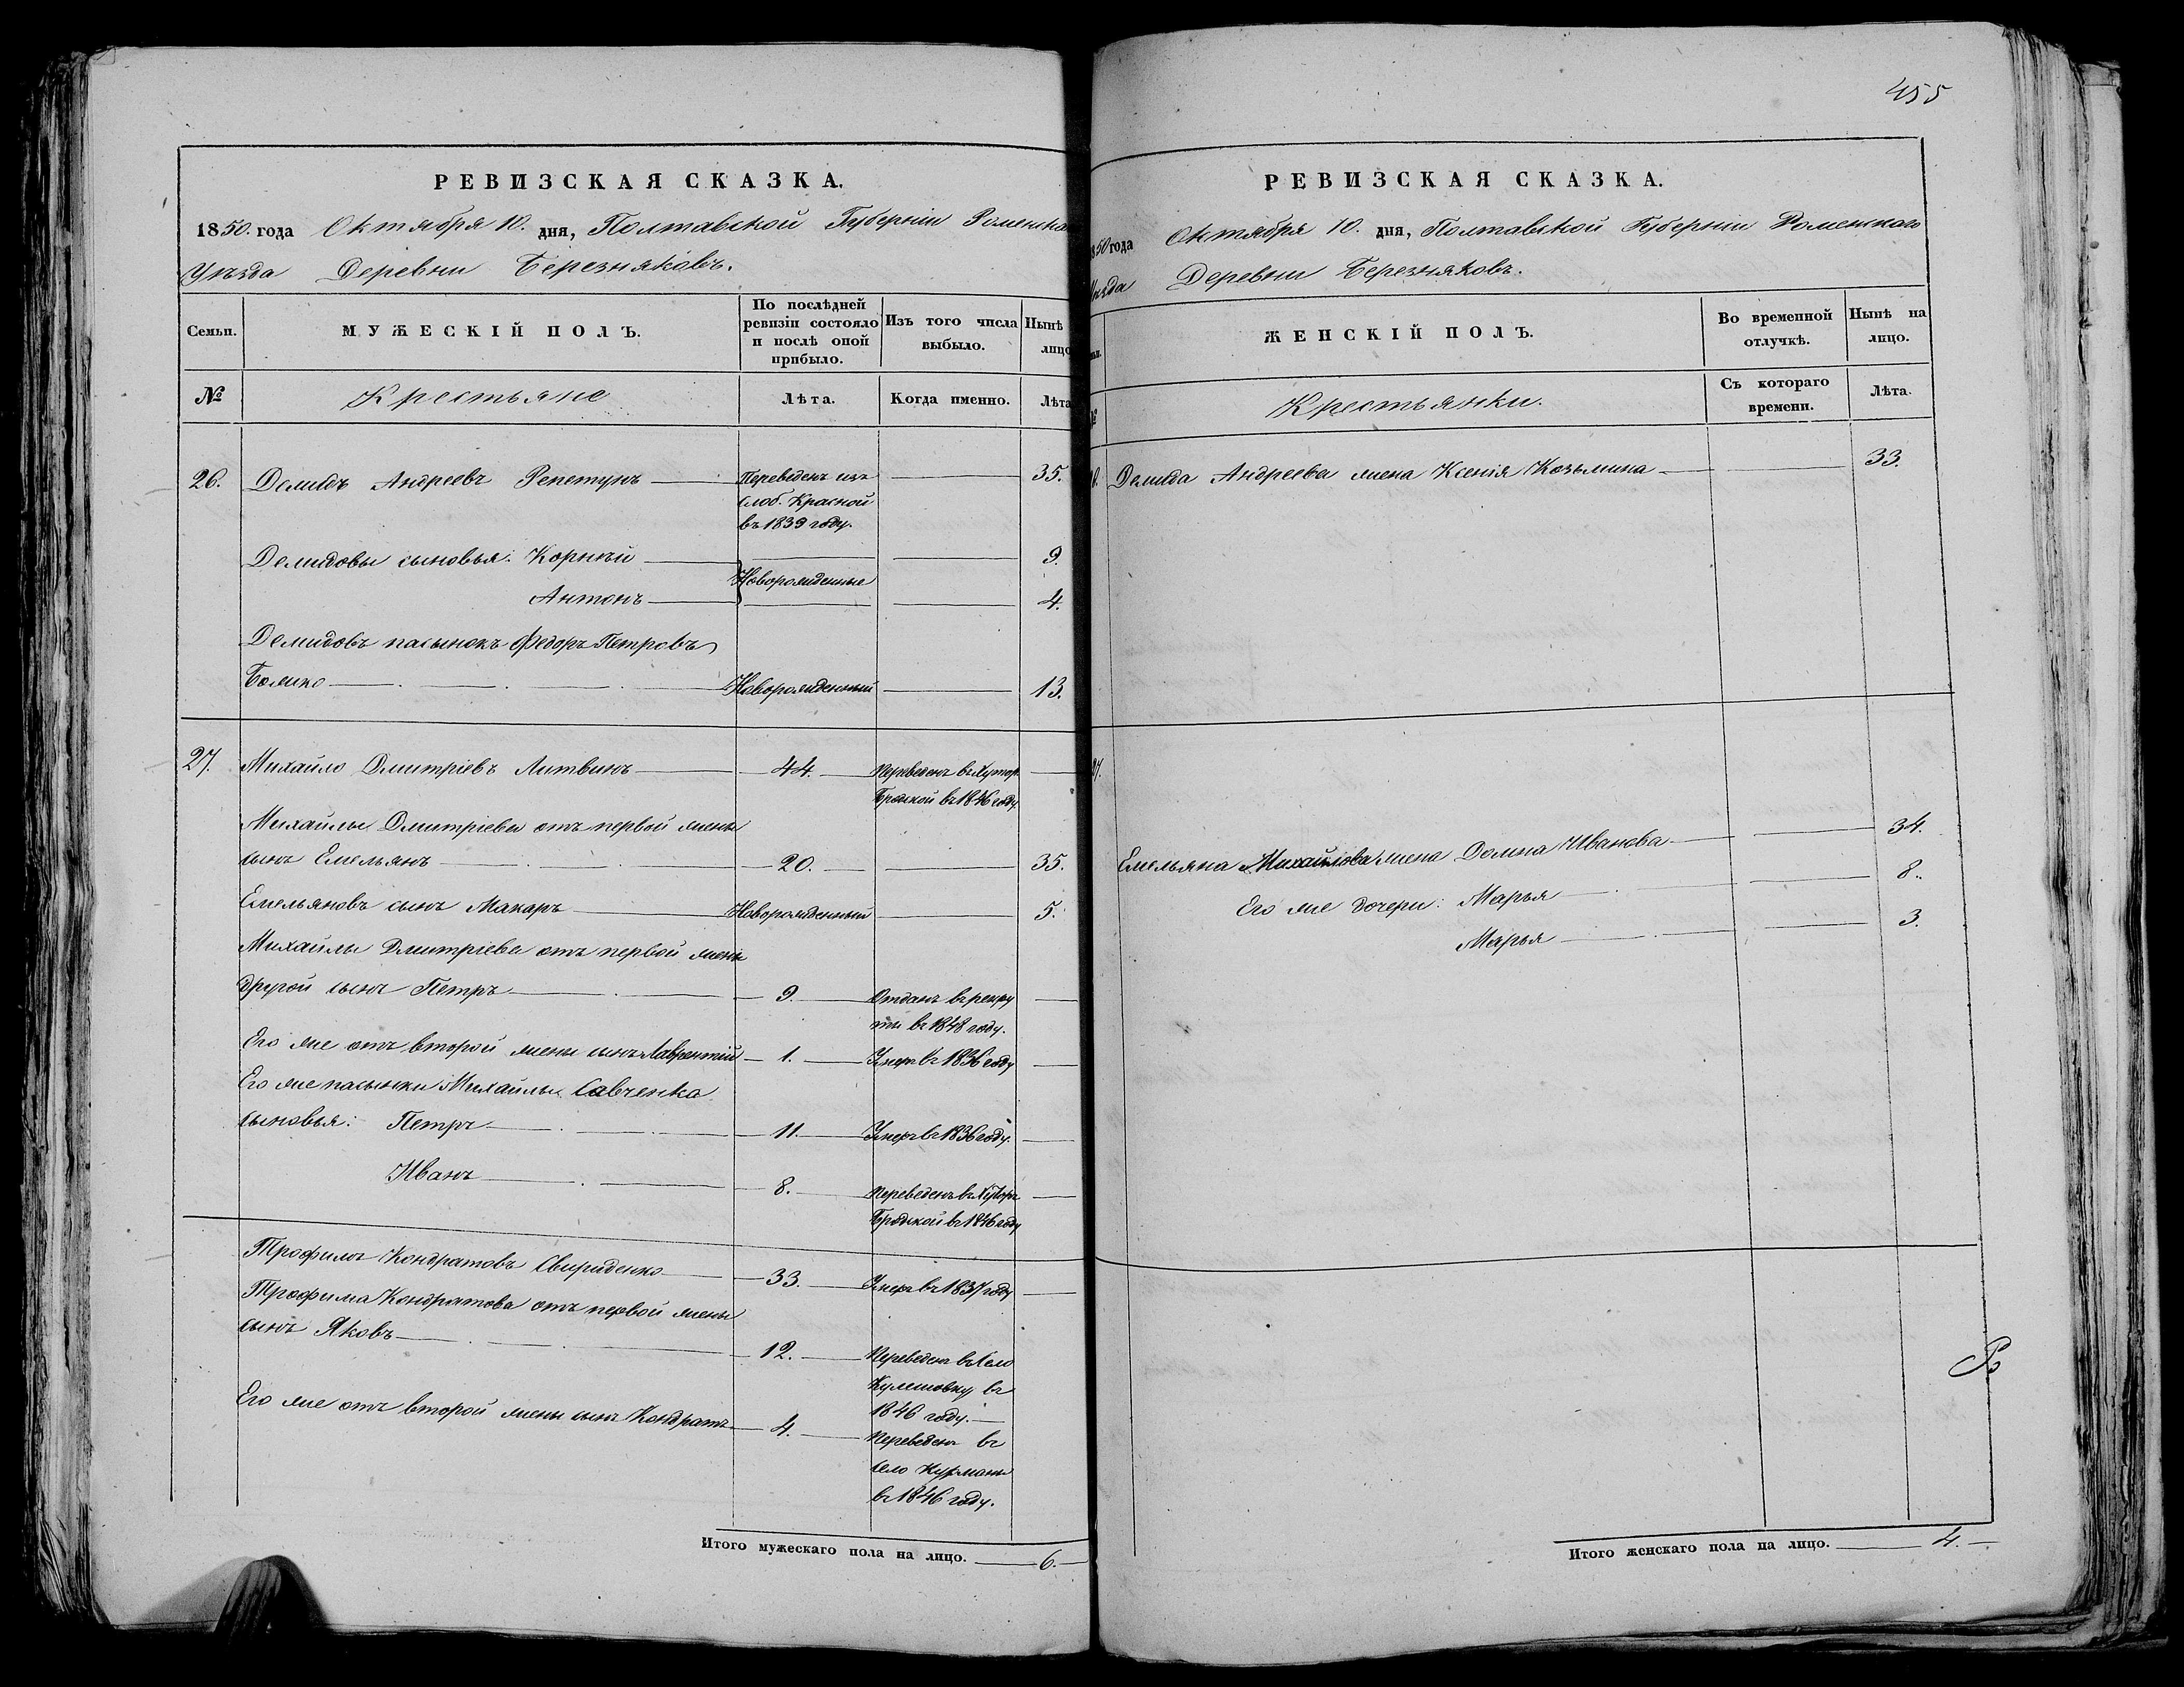 РЕВИЗСКАЯ СКАЗКА.
1850. года Октября 10. дня, Полтавской Губерніи Роменска
Уѣзда Деревни Березняковъ.
Семьи.
МУЖЕСКІЙ ПОЛЪ.
По послѣдней
ревизіи состояло
и послѣ оной
прибыло.
Изъ того числа
выбыло.
Нынѣ
лицо
№
Крестьяне
Лѣта.
Когда именно.
Лѣта
26. Демидъ Андреевъ Репетунъ Переведенъ изъ 35.
слоб. Красной
въ 1839 году.
Демидовы сыновья: Корнѣй 9.
Новорожденные
Антонъ 4.
Демидовъ пасынокъ Федоръ Петровъ
Божко Новорожденный 13.
27. Михайло Дмитріевъ Литвинъ 44. Переведенъ въ Хутор
Бродской въ 1846 году
Михайлы Дмитріева отъ первой жены
сынъ Емельянъ 20. 35.
Емельяновъ сынъ Макаръ Новорожденный 5.
Михайлы Дмитріева отъ первой жены
другой сынъ Петръ 9. Отданъ въ рекру
ты въ 1848 году.
Его же отъ второй жены сынъ Лаврентій 1. Умеръ въ 1836 году
Его же пасынки Михайлы Савченка
сыновья: Петръ 11. Умеръ въ 1836 году.
Иванъ 8. Переведенъ въ Хуторъ
Бродской въ 1846 году
Трофимъ Кондратовъ Свириденко 33. Умеръ въ 1837 году
Трофима Кондратова отъ первой жены
сынъ Яковъ 12. Переведенъ въ Село
Кулешовку въ
1846 году.
Его же отъ второй жены сынъ Кондратъ 4. Переведенъ въ
село Курманы
въ 1846 году.
Итого мужескаго пола на лицо. 6.
455
РЕВИЗСКАЯ СКАЗКА.
850 года Октября 10. дня, Полтавской Губерніи Роменскаго
Уѣзда Деревни Березняковъ.
ЖЕНСКІЙ ПОЛЪ.
Во временной
отлучкѣ.
Нынѣ на
лицо.
№
Крестьянки.
Съ котораго
времени.
Лѣта.
Демида Андреева жена Ксенія Козьмина 33.
27.
Емельяна Михайлова жена Домна Иванова 34.
Его же дочери: Марья 8.
Марья 3.
Итого женскаго пола на лицо. 4.